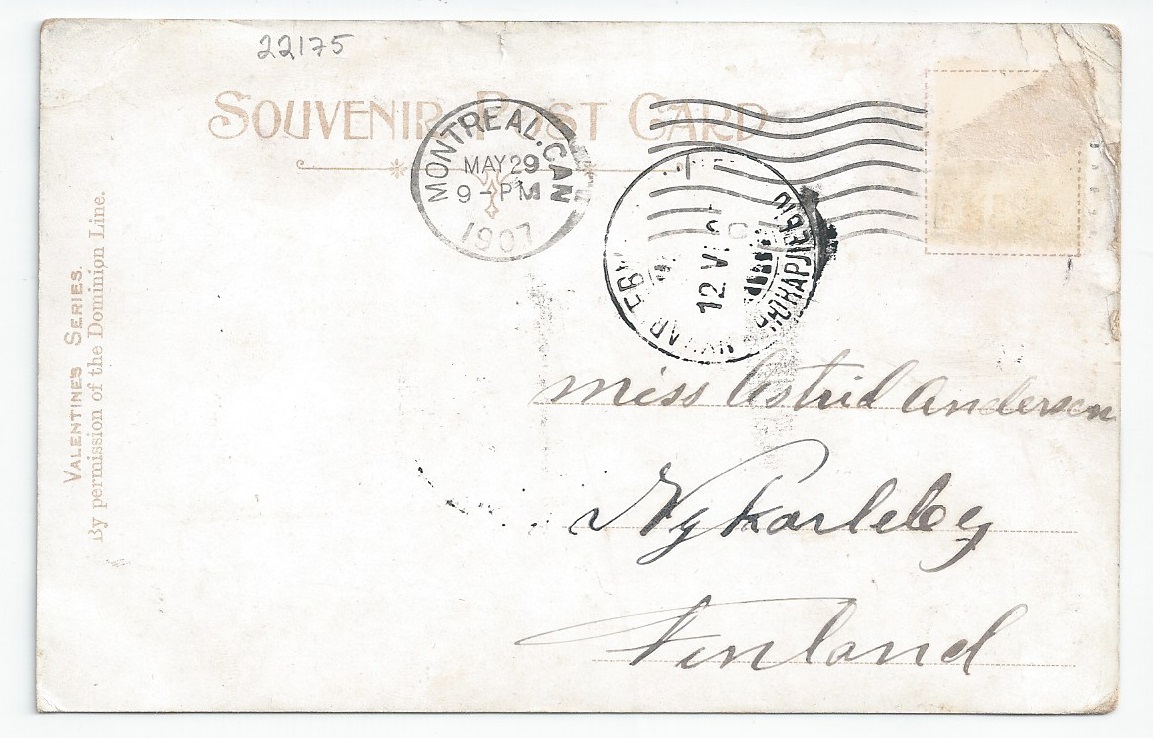 22175
SOUVENIR POST CARD
MONTREAL. CAN
MAY 29
9 - PM
1907
12 VI
VALENTINE'S SERIES.
By permission of the Dominion Line.
Miss Astrid Anderson
Nykarleby
Finland